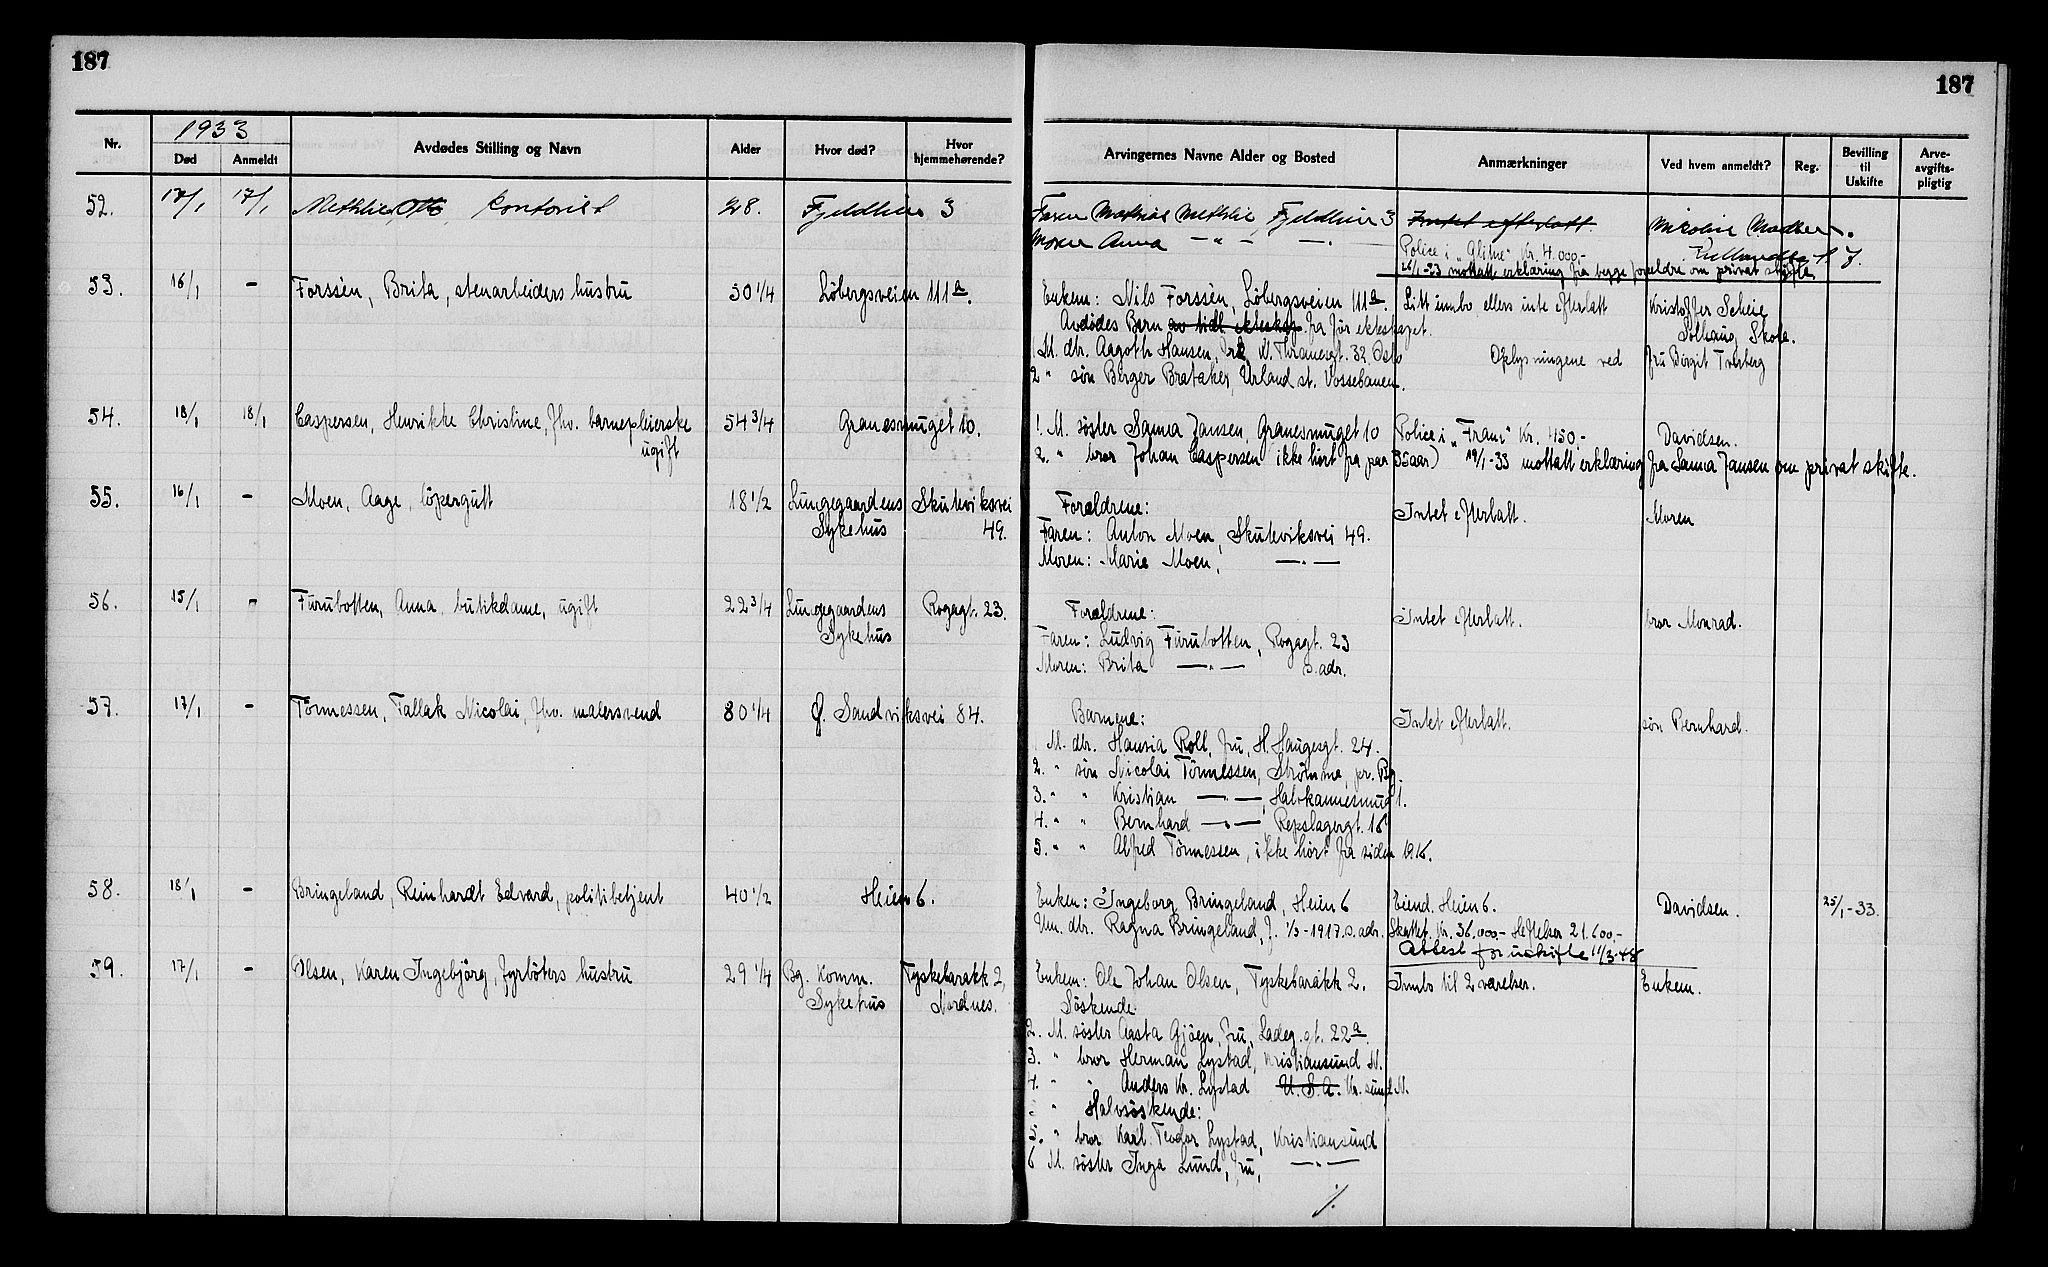 187
187
Nr. 1933 Død Anmeldt Avdødes Stilling og Navn Alder Hvor død? Hvor hjemmehørende? Arvingernes Navne Alder og Bosted Anmærkninger Ved hvem anmeldt? Reg. Bevilling til Uskifte Arveavgiftspligtig
52. 17/1 17/1 Methlie, Otto, kontorist 28. Fjeldlien 3 Faren Mathias Methlie, Fjeldlien 3 Intet efterlatt.
Moren Anna — " — — " —
Police i Kr. 4.000,-
26/1-33 mottatt erklæring fra begge forældre om privat skifte
53. 16/1 - Forssèn, Brita, stenarbeiders hustru 50 1/4 Löbergsveien 111a. Enkem: Nils Forssèn, Löbergsveien 111a. Litt innbo ellers inte efterlatt Kristoffer Scheie
Avdödes Barn av tidl. ekteskap fra för ekteskapet. Solhaug Skole.
1 M. dtr. Aagoth Hansen, M. Thranesgt. 32 Oslo Oplysningene ved fru Birgit Tverberg
2 " sön Berger Brataker, Urland st. Vossebanen.
54. 18/1 18/1 Caspersen, Henrikke Christine, fhv. barnepleierske 54 3/4 Granesmuget 10. 1. M. söster Sanna Jansen, Granesmuget 10 Police i "Fram" Kr. 450,- Davidsen.
ugift 2. " bror Johan Caspersen ikke hört fra paa 35 aar) 19/1-33 mottatt erklæring fra Sanna Jansen om privat skifte.
55. 16/1 - Moen, Aage, löpergutt 18 1/2 Lungegaardens Skuteviksvei Forældrene: Intet efterlatt. Moren
Sykehus 49. Faren: Anton Moen, Skuteviksvei 49.
Moren: Marie Moen, — " —
56. 15/1 - Furubotten, Anna, butikdame, ugift 22 3/4 Lungegaardens Rogagt. 23. Forældrene: Intet efterlatt. bror Monrad.
Sykehus Faren: Ludvig Furubotten, Rogagt. 23
Moren: Brita — " — s. adr.
57. 17/1 - Tönnessen, Tallak Nicolai, fhv. malersvend 80 1/4 Ø. Sandviksvei 84. Barnene: Intet efterlatt. sön Bernhard.
1 M. dtr. Hansia Roll, fru, H. Haugesgt. 24.
2. " sön Nicolai Tönnessen, Strömme, pr. Bg.
3. " " Kristian — " —, Halvkannesmug 1.
4. " " Bernhard — " — Repslagergt. 16
5. " " Alfred Tönnessen, ikke hört fra siden 1916.
58. 18/1 - Bringeland, Reinhardt Edvard, politibetjent 40 1/2 Heien 6. Enken: Ingeborg Bringeland, Heien 6 Eiend. Heien 6. Davidsen. 25/1-33.
Um. dtr. Ragna Bringeland, f. 1/3-1917. s. adr. Skattet. Kr. 36.000,- Heftelser 21.600,-
Attest for uskifte 11/3-48
59. 17/1 - Olsen, Karen Ingebjörg, fyrböters hustru 29 1/4 Bg. Komm. Tyskebarakk 2, Enkem: Ole Johan Olsen, Tyskebarakk 2. Innbo til 2 værelser. Enkem.
Sykehus Nordnes. Söskende:
2. M. söster Aasta Gjöen, fru, Ladeg. gt. 22a
3. " bror Herman Lystad, Kristiansund N.
4. " " Anders Kr. Lystad U.S.A. Kr. sund N.
" Halvsöskende:
5. " bror Karl Teodor Lystad, Kristiansund
6 M. söster Inga Lund, fru, — " —